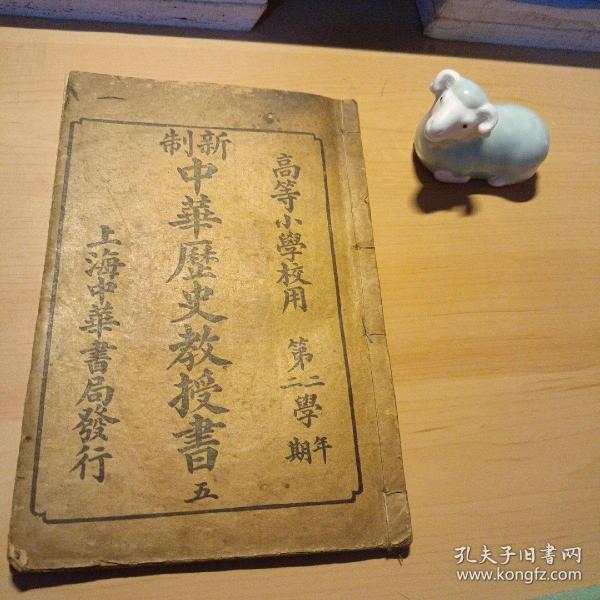 高等小學校用 第二二學年期
新制
中華歷史教授書 五
上海中華書局發行
孔夫子旧书网
www.kongfz.com